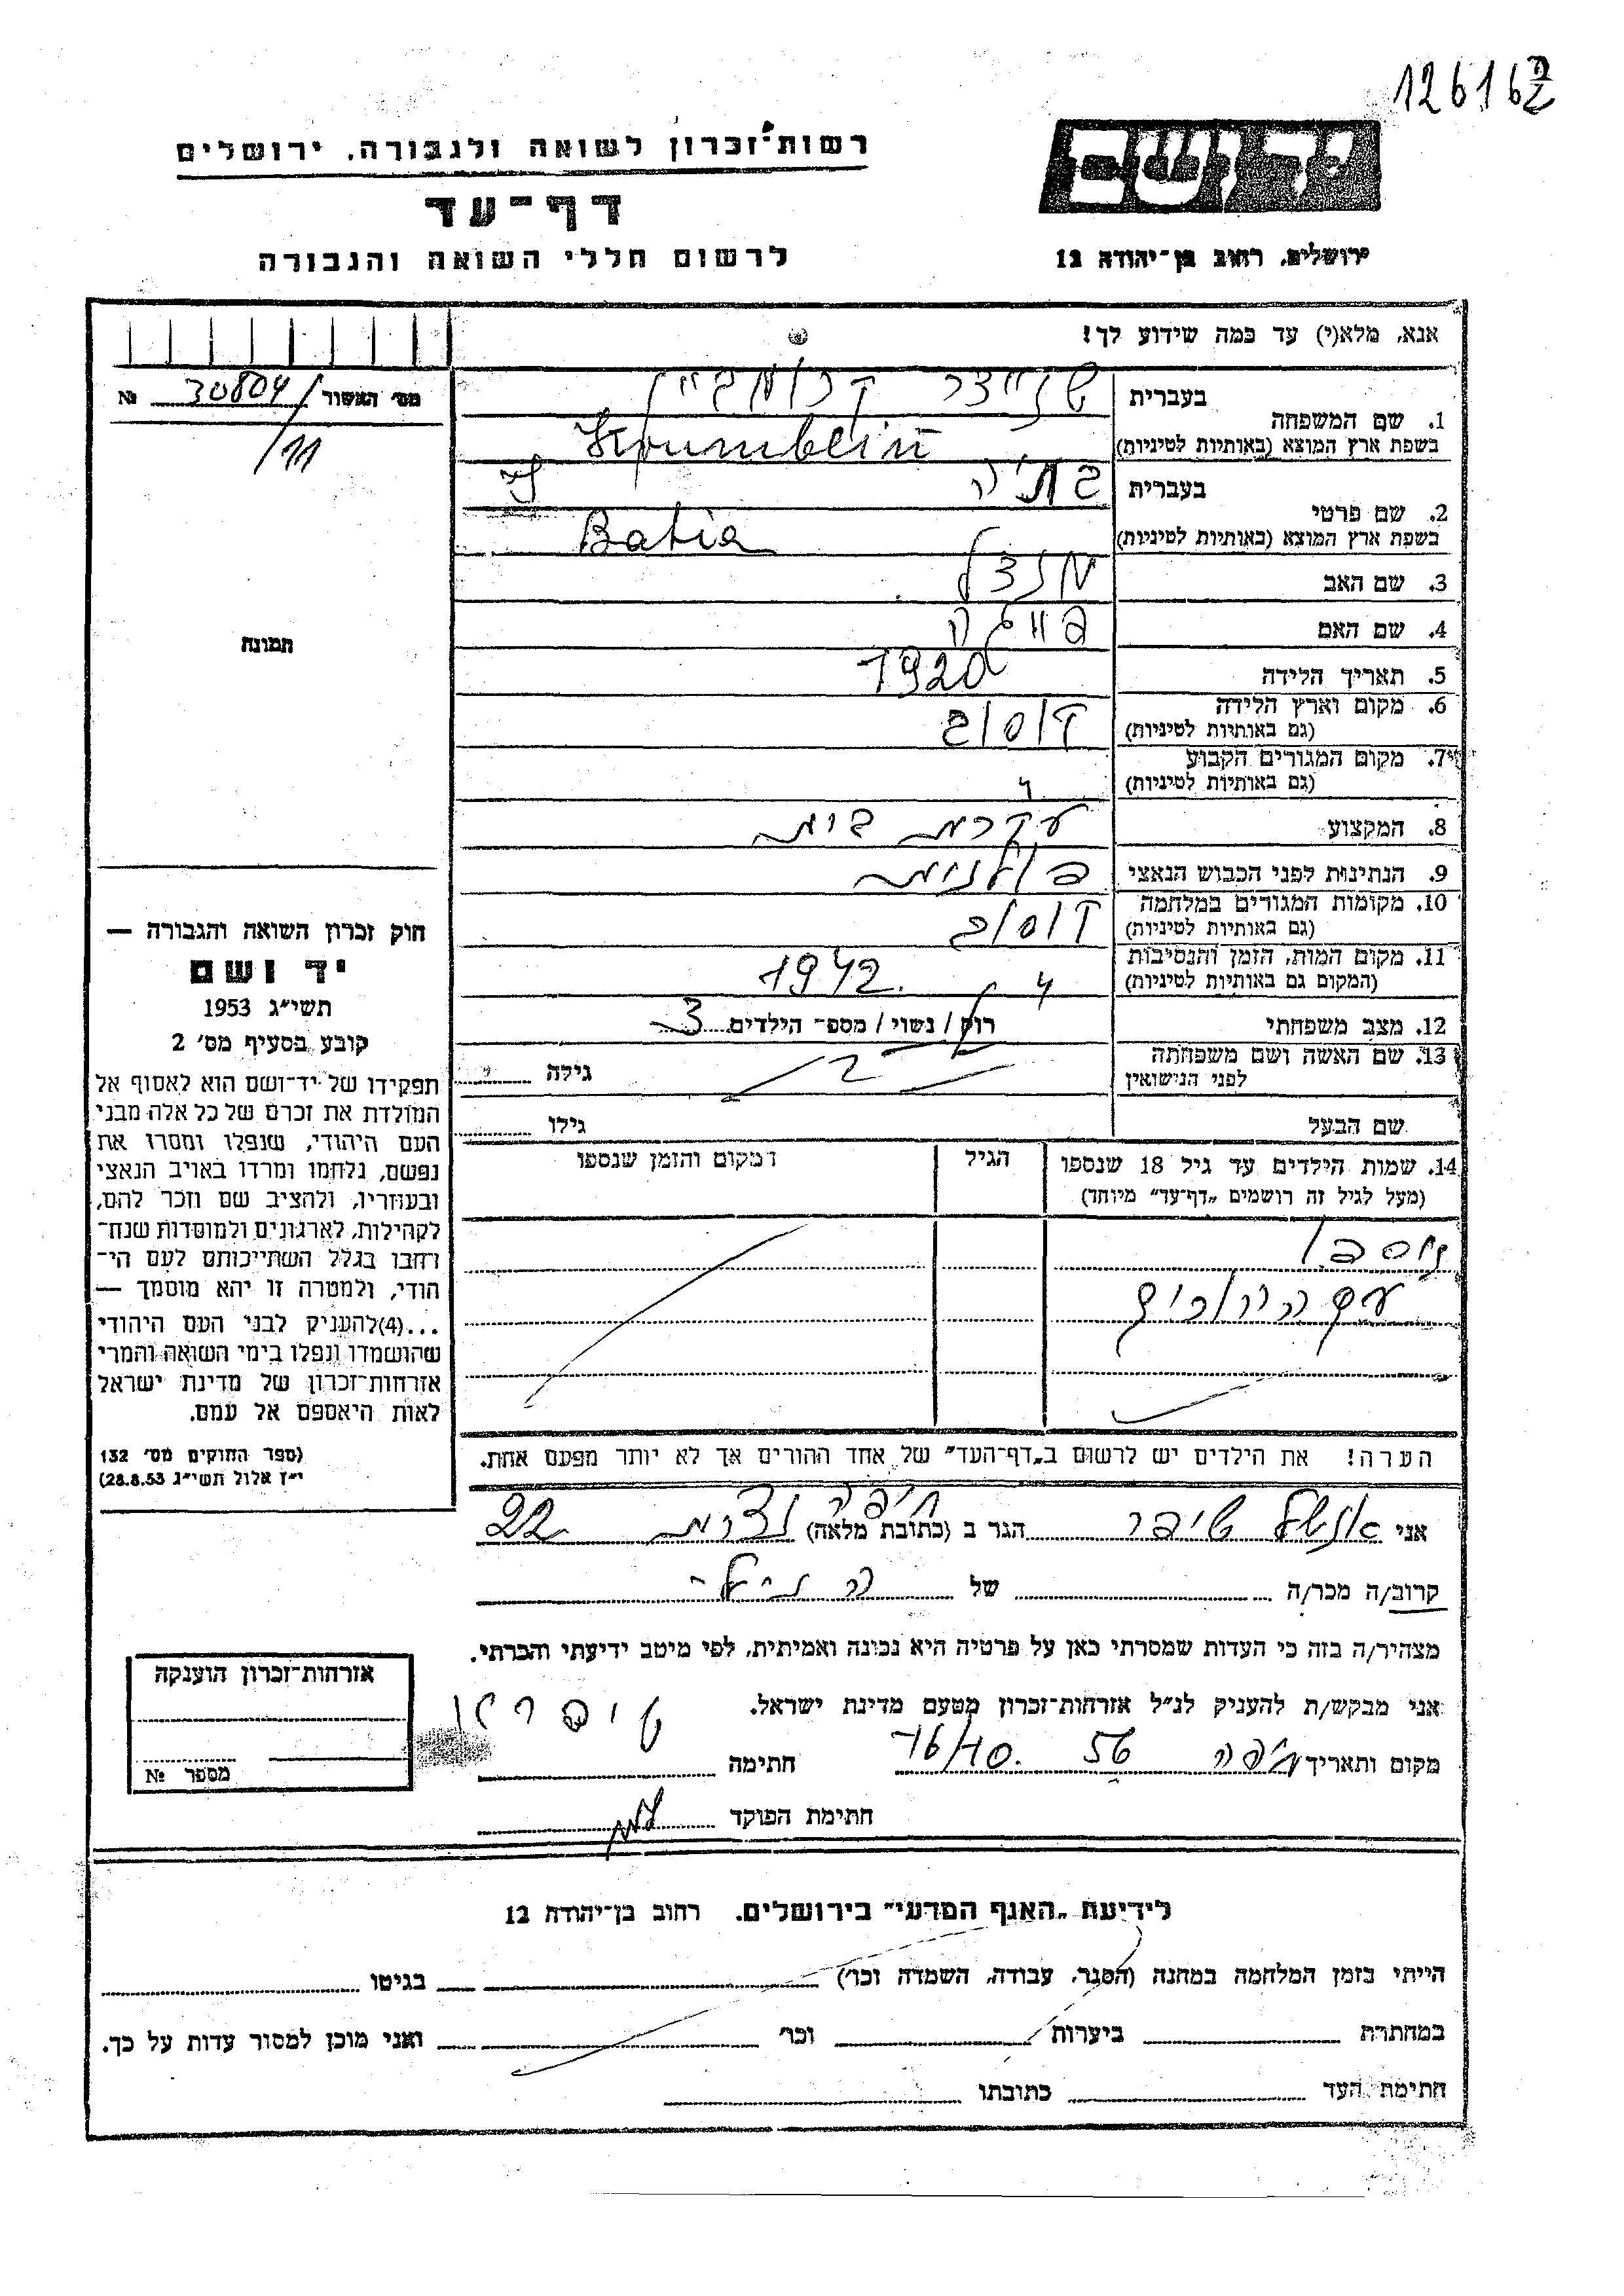 126162
רשות־זכרון לשואה ולגבורה, ירושלים
דף־עד
לרשום חללי השואה והגבורה
יד ושם
ירושלים, רחוב בן־יהודה 12
אנא, מלא(י) עד כמה שידוע לך!
מס׳ האסור 30804/ №
/11
תמונה
1. שם המשפחה
בעברית שנייצר קרומביין
בשפת ארץ המוצא (באותיות לטיניות) Krumbein
2. שם פרטי
בעברית בתיה
בשפת ארץ המוצא (באותיות לטיניות) Batia
3. שם האב מנדל
4. שם האם
5. תאריך הלידה 1920
6. מקום וארץ הלידה
(גם באותיות לטיניות)
7. מקום המגורים הקבוע
(גם באותיות לטיניות)
8. המקצוע עקרת בית
9. הנתינות לפני הכבוש הנאצי פולנית
10. מקומות המגורים במלחמה
(גם באותיות לטיניות)
11. מקום המות, הזמן והנסיבות 1942
(המקום גם באותיות לטיניות)
12. מצב משפחתי רוק / נשוי / מספ־ הילדים 3
13. שם האשה ושם משפחתה
לפני הנישואין
גילה
שם הבעל גילו
14. שמות הילדים עד גיל 18 שנספו
(מעל לגיל זה רושמים „דף־עד״ מיוחד)
הגיל
המקום והזמן שנספו
נוספו
עם ההורים
הערה! את הילדים יש לרשום ב„דף־העד״ של אחד ההורים אך לא יותר מפעם אחת.
חוק זכרון השואה והגבורה —
יד ושם
תשי״ג 1953
קובע בסעיף מס׳ 2
תפקידו של יד־ושם הוא לאסוף אל
המולדת את זכרם של כל אלה מבני
העם היהודי, שנפלו ומסרו את
נפשם, נלחמו ומרדו באויב הנאצי
ובעוזריו, ולהציב שם וזכר להם,
לקהילות, לארגונים ולמוסדות שנח־
רחבו בגלל השתייכותם לעם הי־
הודי, ולמטרה זו יהא מוסמך —
...(4)להעניק לבני העם היהודי
שהושמדו ונפלו בימי השואה והמרי
אזרחות־זכרון של מדינת ישראל
לאות היאספם אל עמם.
(ספר החוקים מס׳ 132
י״ז אלול תשי״ג 28.8.53)
אני אנשל טיבר הגר ב (כתובת מלאה) חיפה נצרת 22
קרוב/ה מכר/ה של
מצהיר/ה בזה כי העדות שמסרתי כאן על פרטיה היא נכונה ואמיתית, לפי מיטב ידיעתי והכרתי.
אני מבקש/ת להעניק לנ״ל אזרחות־זכרון מטעם מדינת ישראל.
מקום ותאריך חיפה 16/10. 56 חתימה
חתימת הפוקד
אזרחות־זכרון הוענקה
מספר №
לידיעת „האגף המדעי״ בירושלים. רחוב בן־יהודת 12
הייתי בזמן המלחמה במחנה (הסגר, עבודה, השמדה וכר׳) בגיטו
במחתרת ביערות וכר׳ ואני מוכן למסור עדות על כך.
חתימת העד כתובתו